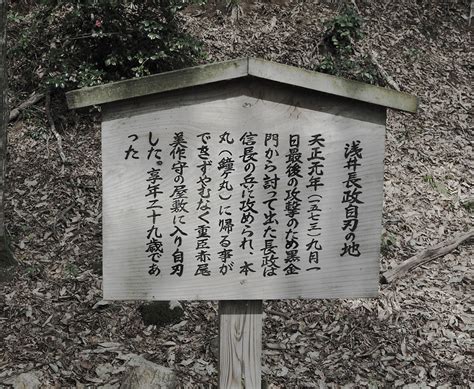 浅井長政自刃の地
天正元年（一五七三）九月一
日最後の攻撃のため黒金
門から討って出た長政は
信長の兵に攻められ、本
丸（鐘ケ丸）に帰る事が
できずやむなく重臣赤尾
美作守の屋敷に入り自刃
した。享年二十九歳であ
った